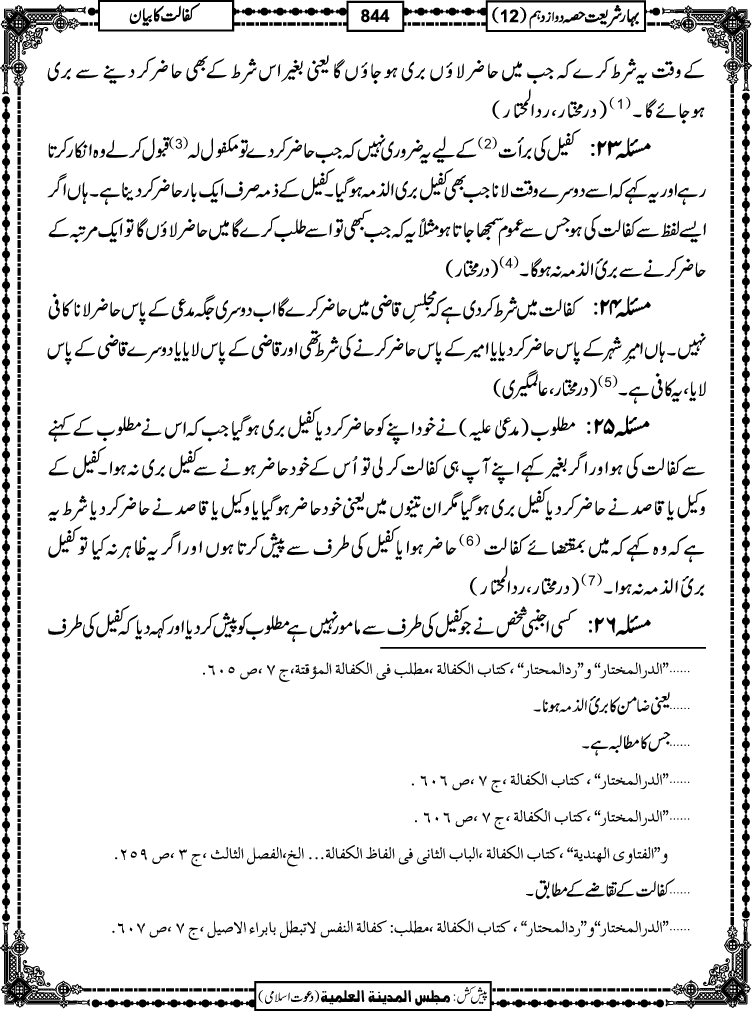 بہارِ شریعت حصہ دوازدہم (12)
844
کفالت کا بیان
کے وقت یہ شرط کرے کہ جب میں حاضر لاؤں بری ہو جاؤں گا یعنی بغیر اس شرط کے بھی حاضر کر دینے سے بری
ہو جائے گا۔(1) (درمختار، ردالمحتار)
مسئلہ ۲۳: کفیل کی برأت(2) کے لیے یہ ضروری نہیں کہ جب حاضر کردے تو مکفول لہ(3) قبول کرلے وہ انکار کرتا
رہے اور یہ کہے کہ اسے دوسرے وقت لانا جب بھی کفیل بری الذمہ ہوگیا۔ کفیل کے ذمہ صرف ایک بار حاضر کردینا ہے۔ ہاں اگر
ایسے لفظ سے کفالت کی ہو جس سے عموم سمجھا جاتا ہو مثلاً یہ کہ جب کبھی تو اسے طلب کرے گا میں حاضر لاؤں گا تو ایک مرتبہ کے
حاضر کرنے سے برئ الذمہ نہ ہوگا۔(4) (درمختار)
مسئلہ ۲۴: کفالت میں شرط کردی ہے کہ مجلسِ قاضی میں حاضر کرے گا اب دوسری جگہ مدعی کے پاس حاضر لانا کافی
نہیں۔ ہاں امیرِ شہر کے پاس حاضر کردیا یا امیر کے پاس حاضر کرنے کی شرط تھی اور قاضی کے پاس لایا یا دوسرے قاضی کے پاس
لایا، یہ کافی ہے۔(5) (درمختار، عالمگیری)
مسئلہ ۲۵: مطلوب (مدعیٰ علیہ) نے خود اپنے کو حاضر کردیا کفیل بری ہوگیا جب کہ اس نے مطلوب کے کہنے
سے کفالت کی ہو اور اگر بغیر کہے اپنے آپ ہی کفالت کرلی تو اُس کے خود حاضر ہونے سے کفیل بری نہ ہوا۔ کفیل کے
وکیل یا قاصد نے حاضر کردیا کفیل بری ہوگیا مگر ان تینوں میں یعنی خود حاضر ہوگیا یا وکیل یا قاصد نے حاضر کردیا شرط یہ
ہے کہ وہ کہے کہ میں بمقتضائے کفالت(6) حاضر ہوا یا کفیل کی طرف سے پیش کرتا ہوں اور اگر یہ ظاہر نہ کیا تو کفیل
برئ الذمہ نہ ہوا۔(7) (درمختار، ردالمحتار)
مسئلہ ۲۶: کسی اجنبی شخص نے جو کفیل کی طرف سے مامور نہیں ہے مطلوب کو پیش کردیا اور کہہ دیا کہ کفیل کی طرف
......"الدرالمختار" و"ردالمحتار"، کتاب الکفالة، مطلب فی الکفالة المؤقتة، ج ۷، ص ۶۰۵.
......یعنی ضامن کا برئ الذمہ ہونا۔
......جس کا مطالبہ ہے۔
......"الدرالمختار"، کتاب الکفالة، ج ۷، ص ۶۰۶.
......"الدرالمختار"، کتاب الکفالة، ج ۷، ص ۶۰۶.
و"الفتاوی الهندية"، کتاب الکفالة، الباب الثانی فی الفاظ الکفالة... الخ، الفصل الثالث، ج ۳، ص ۲۵۹.
......کفالت کے تقاضے کے مطابق۔
......"الدرالمختار" و"ردالمحتار"، کتاب الکفالة، مطلب: کفالة النفس لا تبطل بابراء الاصیل، ج ۷، ص ۶۰۷.
پیش کش: مجلس المدینة العلمیة (دعوت اسلامی)